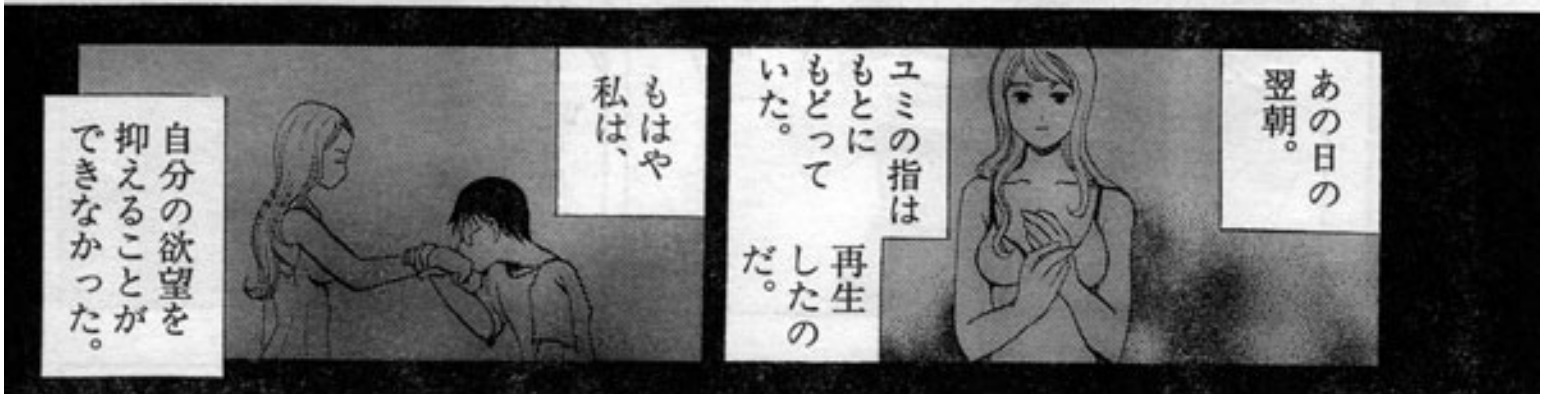 あの日の
翌朝。
ユミの指は
もとに
もどって
いた。
再生
したの
だ。
もはや
私は、
自分の欲望を
抑えることが
できなかった。